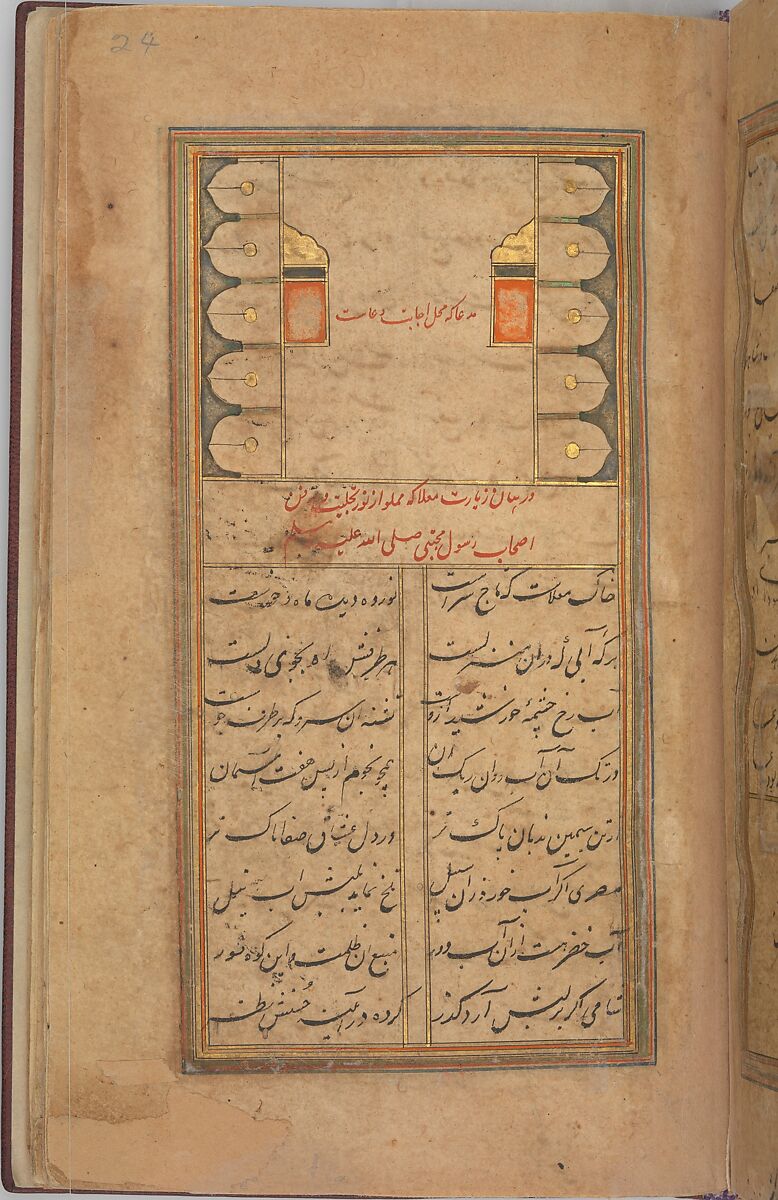 24
مدعا که محل اجابت دعاست
در بیان زیارت معلا که مملو از نور تجلیت و
اصحاب رسول مجتبی صلی الله علیه و سلم
خاک معلات که تاج سراست نور ده دیده ماه و خورست
برکه آبی که در آن منزلست هر طرفش راه بجوی دلست
آب رخ چشمهٔ خورشید ازوست تشنه آن سرو که بر طرف جوست
در تک آن آب روان ریک آن همچو نجوم از پس هفت آسمان
از تن سیمین بدنان پاک تر وز دل عشاق صفاناک تر
مصری اگر آب خورد زان سبیل تلخ نماید بلبش آب نیل
آب خضر هست از آن آب دور منبع آن ظلمت و این کوه نور
شامی اگر بر لبش آرد گذر کرده در آیینه حسنش نظر